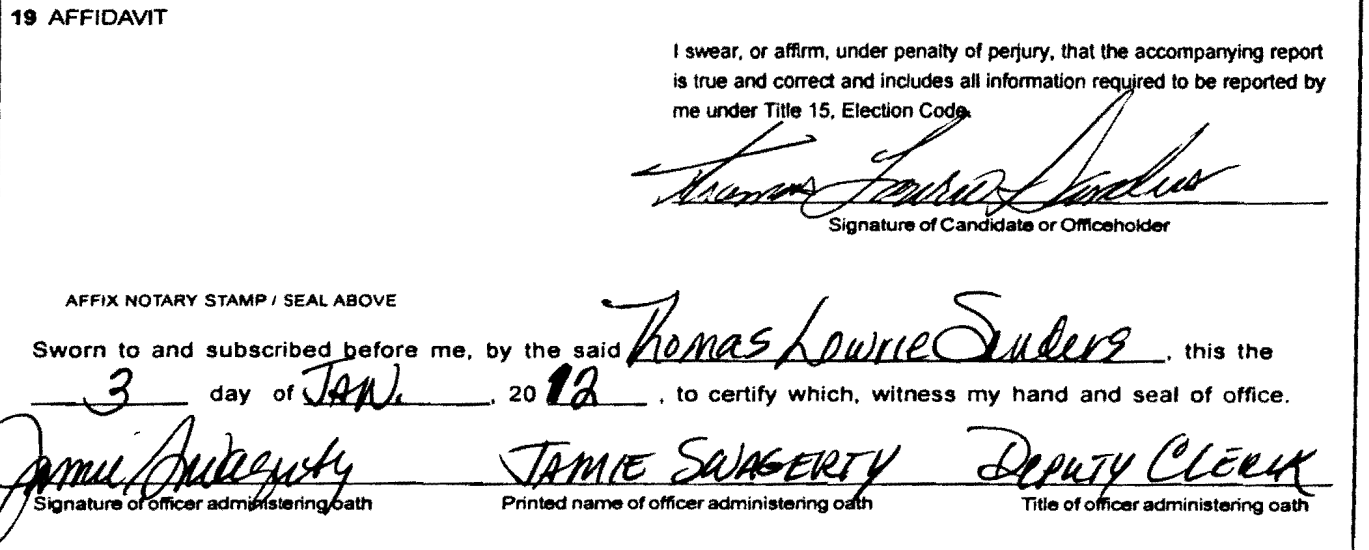 19 AFFIDAVIT
I swear, or affirm, under penalty of perjury, that the accompanying report
is true and correct and includes all information required to be reported by
me under Title 15, Election Code.
Thomas Lowrie Sanders
Signature of Candidate or Officeholder
AFFIX NOTARY STAMP / SEAL ABOVE
Sworn to and subscribed before me, by the said Thomas Lowrie Sanders, this the
3 day of JAN., 20 12, to certify which, witness my hand and seal of office.
Jamie Swagerty JAMIE SWAGERTY DEPUTY CLERK
Signature of officer administering oath Printed name of officer administering oath Title of officer administering oath